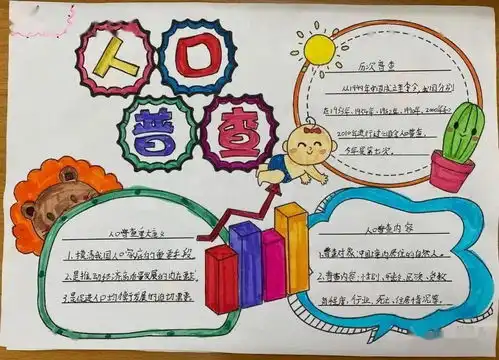 人口
普查
历次普查
从1949年的国成立至今，我国分别
在1953年、1964年、1982年、1990年、2000年和
2010年进行过六次全国人口普查。
今年是第七次。
人口普查重大意义
1.摸清我国人口家底的重要手段
2.是推动经济高质量发展的内在要求。
3.是促进人口均衡发展的迫切需要
人口普查内容
1.普查对象:中国境内居住的自然人。
2.普查内容:性别、
行业、死亡、住房情况等。